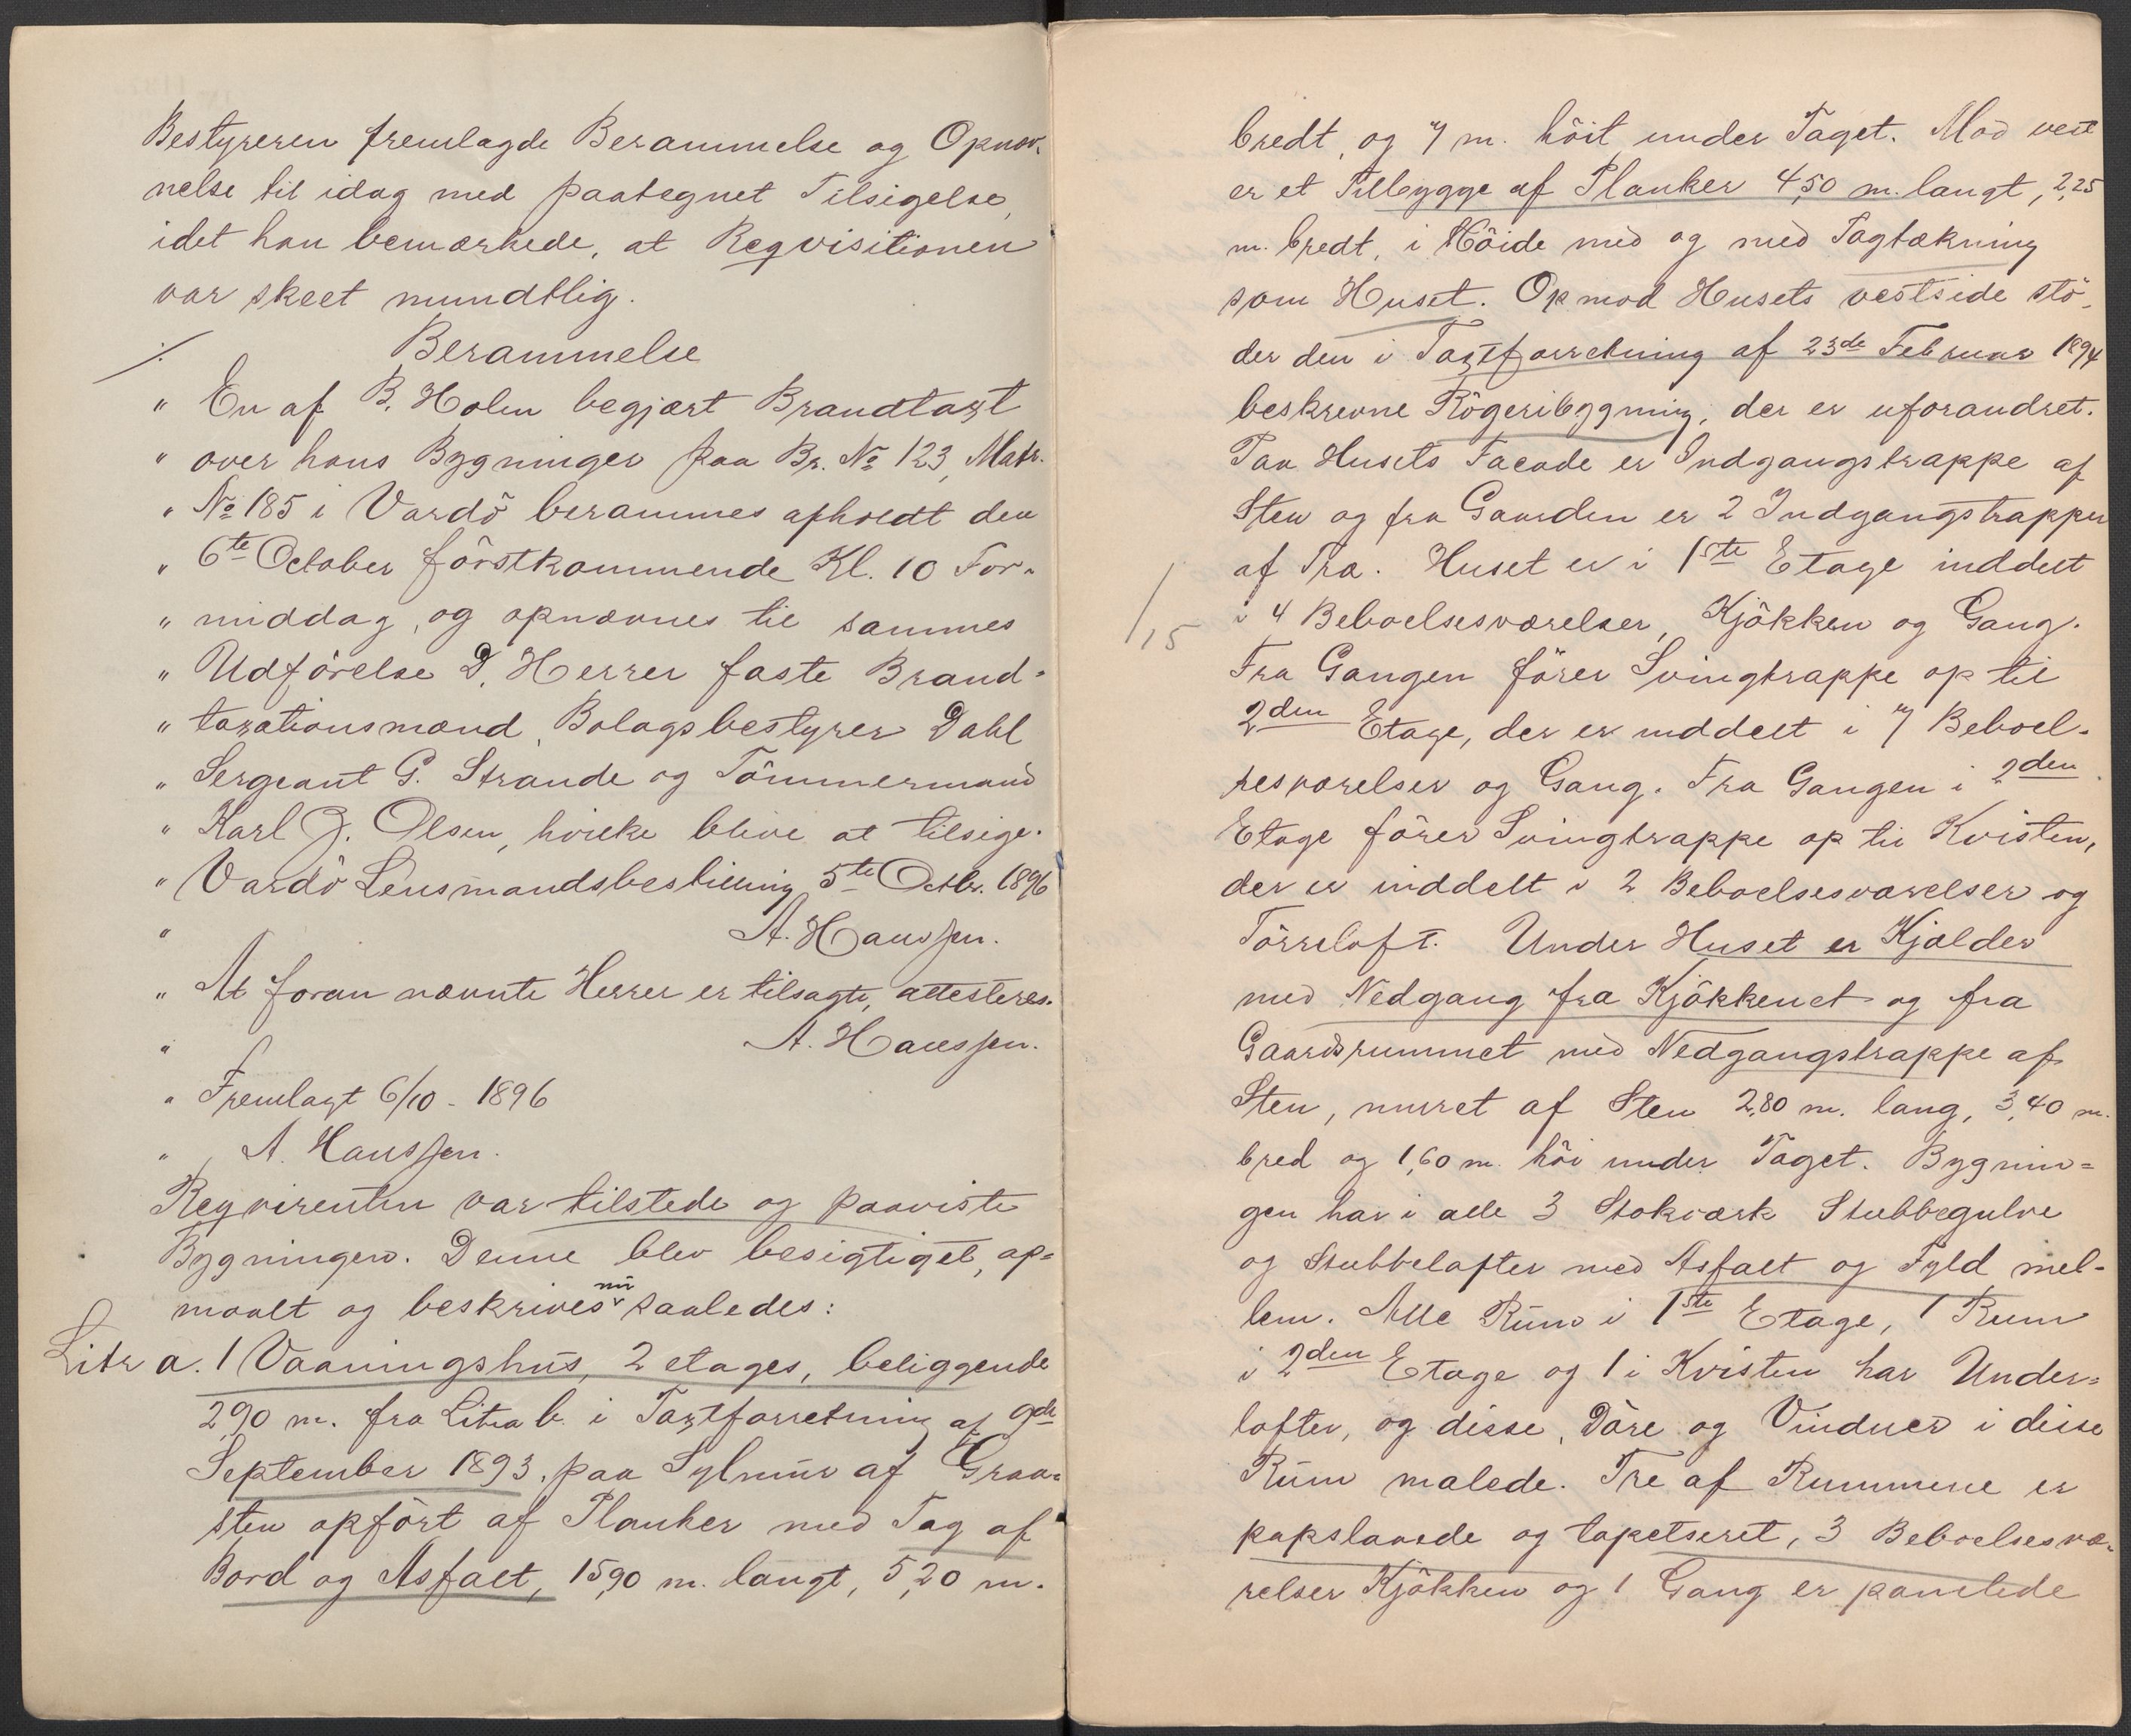 Bestyreren fremlagde Berammelse og Opnæv-
nelse til idag med paategnet Tilsigelse,
idet han bemærkede, at Reqvisitionen
var skeet mundtlig.
./. Berammelse
" En af B. Holm begjært Brandtaxt
" over hans Bygninger paa Br. No 123, Matr.
" No 185 i Vardö berammes afholdt den
" 6te October förstkommende Kl. 10 For-
" middag, og opnævnes til sammes
" Udförelse D. Herrer faste Brand-
" taxationsmænd, Bolagsbestyrer Dahl
" Sergeant G. Strande og Tömmermand
" Karl J. Olsen, hvilke blive at tilsige.
" Vardö Lensmandsbestilling 5te Octbr. 1896
" A. Hanssen.
" At foran nævnte Herrer er tilsagte, attesteres.
" A. Hanssen.
" Fremlagt 6/10 - 1896
" A. Hanssen.
Reqvirenten var tilstede og paaviste
Bygningen. Denne blev besigtiget, op-
nu
maalt og beskrives saaledes:
Litr a. 1 Vaaningshus, 2 etages, beliggende
2,90 m. fra Litra b. i Taxtforretning af 9de
September 1893, paa Sylmur af Graa-
sten opfört af Planker med Tag af
Bord og Asfalt, 15,90 m. langt, 5,20 m.
bredt, og 7 m. höit under Taget. Mod vest
er et Tilbygge af Planker 4,50 m. langt, 2,25
m. bredt, i Höide med og med Tagtækning
som Huset. Op mod Husets vestside stö-
der den i Taxtforretning af 23de Februar 1894
beskrevne Rögeribygning, der er uforandret.
Paa Husets Facade er Indgangstrappe af
Sten og fra Gaarden er 2 Indgangstrapper
af Træ. Huset er i 1ste Etage inddelt
/15
i 4 Beboelsesværelser, Kjökken og Gang.
Fra Gangen förer Svingtrappe op til
2den Etage, der er inddelt i 7 Beboel-
sesværelser og Gang. Fra Gangen i 2den
Etage förer Svingtrappe op til Kvisten,
der er inddelt i 2 Beboelsesværelser og
Törreloft. Under Huset er Kjælder
med Nedgang fra Kjökkenet og fra
Gaardsrummet med Nedgangstrappe af
Sten, muret af Sten 2,80 m. lang, 3,40 m.
bred og 1,60 m. höi under Taget. Bygnin-
gen har i alle 3 Stokværk Stubbegulve
og Stubbelofter med Asfalt og Fyld mel-
lem. Alle Rum i 1ste Etage, 1 Rum
i 2den Etage og 1 i Kvisten har Under-
lofter, og disse, Döre og Vinduer i disse
Rum malede. Tre af Rummene er
papslaaede og tapetseret, 3 Beboelsesvæ-
relser Kjökken og 1 Gang er panelede